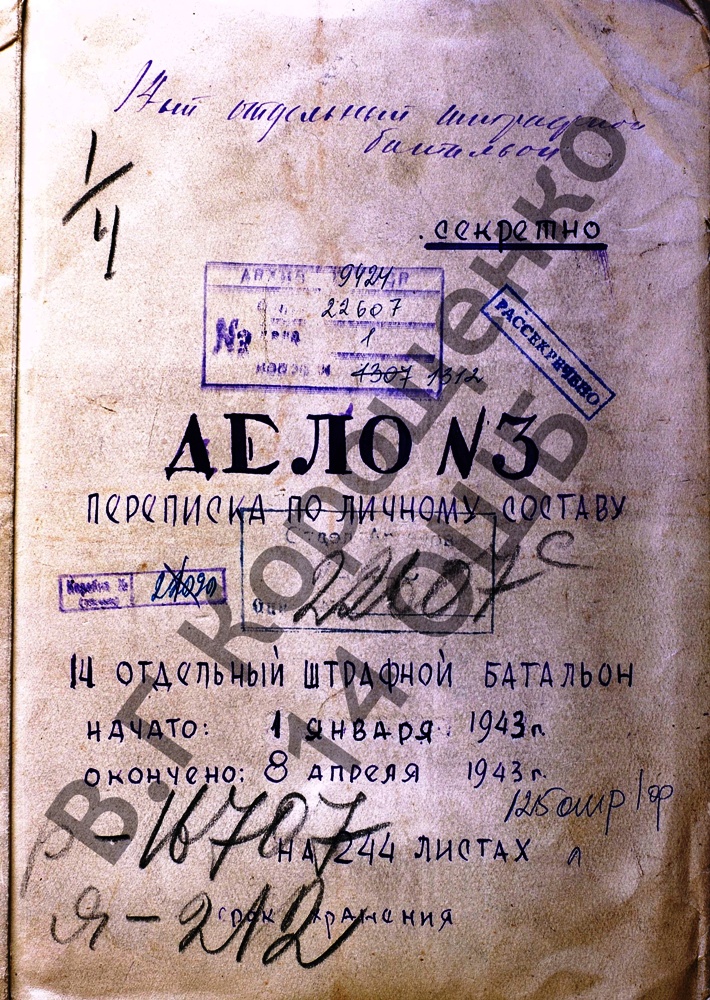 14ый отдельный штрафной
батальон
1/4
секретно
АРХИВ 9424
22607
№ 1
4307 1312
РАССЕКРЕЧЕНО
ДЕЛО N3
ПЕРЕПИСКА ПО ЛИЧНОМУ СОСТАВУ
Отдел
22607 с
Оп
Коробка №
24020
14 ОТДЕЛЬНЫЙ ШТРАФНОЙ БАТАЛЬОН
НАЧАТО: 1 ЯНВАРЯ 1943г.
ОКОНЧЕНО: 8 АПРЕЛЯ 1943г.
р-16707
НА 244 ЛИСТАХ
Я-212
СРОК ХРАНЕНИЯ
В.Г. Корощенко
14 ОШБ